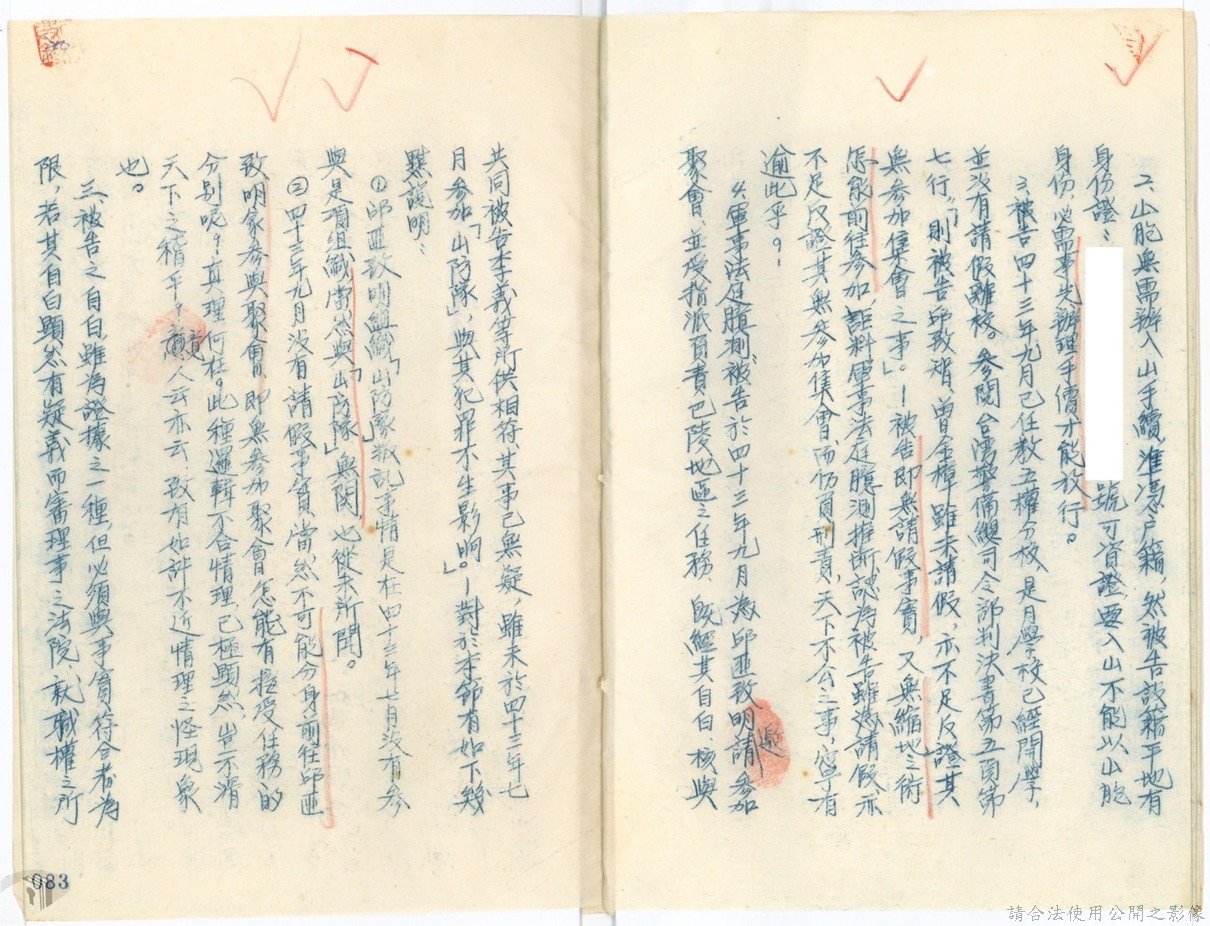 2.山胞無需辦入山手續，准憑户籍，然被告設籍平地有
身份證：
號可資證，要入山不能以山胞
身份，必需事先辦理手續才能放行。
3.被告四十三年九月已任教五權分校，是月學校已經開學，
並没有請假離校。參閱台灣警備總司令部判決書第五頁第
七行，「則被告邱致明、曾金樟雖未請假，亦不足反證其
無參加集會之事」。—被告即無請假事實，又無縮地之術
怎能前往參加，詎料軍事法庭臆測推斷認為被告雖返請假亦
不足反證其無參加集會，而仍負刑責，天下不公之事，寧有
逾此乎？！
4.軍事法庭臆測，被告於四十三年九月為邱匪致明請參加
邀
聚會、並受指派負責巴陵地區之任務，既經其自白核與
共同被告李義等所供相符，其事已無疑，雖未於四十三年七
月參加「山防隊」，與其犯罪不生影响。」—對於本節有如下幾
點說明：
①邱匪致明組織「山防隊」叛乱事情是在四十三年七月没有參
與是項組織當然與「山防隊」無関，也從未所聞。
②四十三年九月没有請假事實，當然不可能分身前往邱匪
致明家參與聚會，即無參加聚會怎能有接受任務的
分別呢？真理何在。此種邏輯不合情理，已極顯然，豈不滑
天下之稽乎？竟人云亦云，致有如許不近情理之怪現象
也。
三、被告之自白雖為證據之一種但必須與事實符合者為
限，若其自白顯然有疑義而審理事之法院，就職權之所
083
請合法使用公開之影像